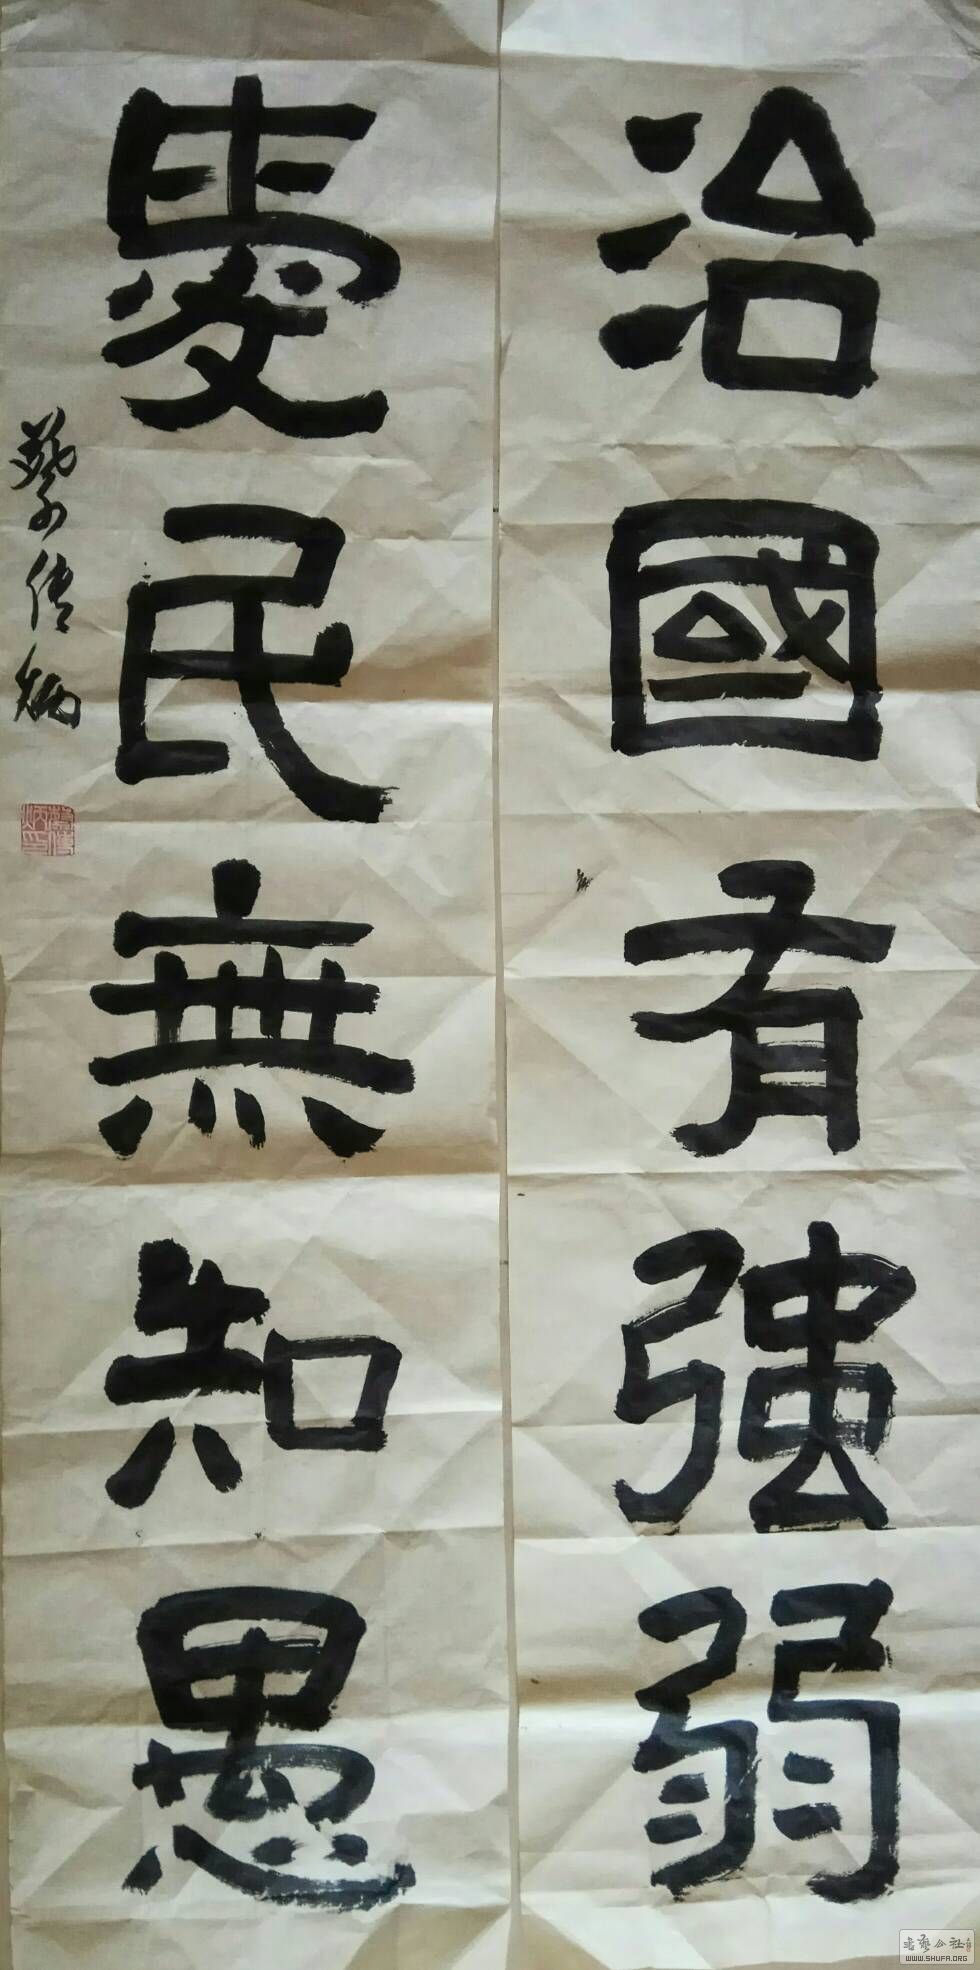 治國有強弱
愛民無知愚
蔡传炳
书艺公社
WWW.SHUFA.ORG